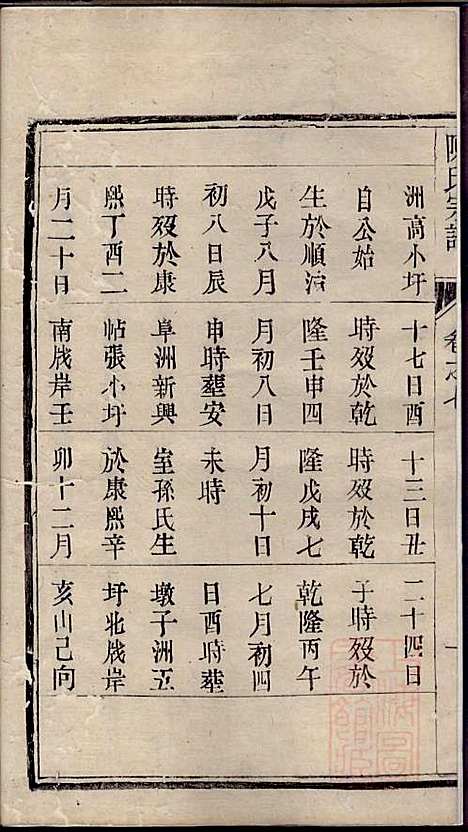 陳氏宗譜
卷之七
洲高小圩
自公始
生於順治
戊子八月
初八日辰
時歿於康
熙丁酉二
月二十日
十七日酉
時歿於乾
隆壬申四
月初八日
申時塟安
阜洲新興
帖張小圩
南戗岸壬
十三日丑
時歿於乾
隆戊戌七
月初十日
未時
室孫氏生
於康熙辛
卯十二月
二十四日
子時歿於
乾隆丙午
七月初四
日酉時塟
墩子洲五
圩北戗岸
亥山己向